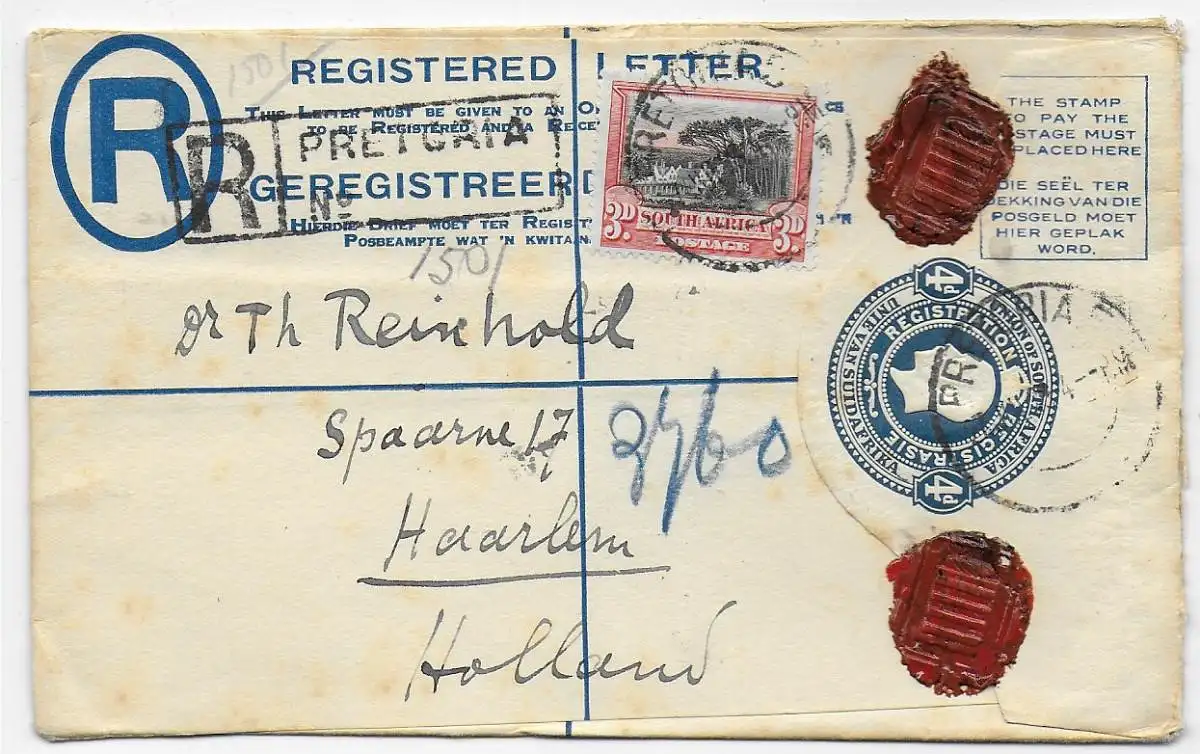 R
REGISTERED LETTER
THIS LETTER MUST BE GIVEN TO AN
TO BE REGISTERED AND A
GEREGISTREER
HIERDIE BRIEF MOET TER
POSBEAMPTE WAT 'N
150/
R PRETORIA
No
3D SOUTH AFRICA 3D
POSTAGE
THE STAMP
TO PAY THE
POSTAGE MUST
PLACED HERE
DIE SEËL TER
DEKKING VAN DIE
POSGELD MOET
HIER GEPLAK
WORD.
150/
Dr Th Reinhold
Spaarne 17
Haarlem
Holland
2760
4D
UNION OF SOUTH AFRICA
UNIE VAN SUID AFRIKA
REGISTRATION
REGISTRASIE
4D
PRETORIA